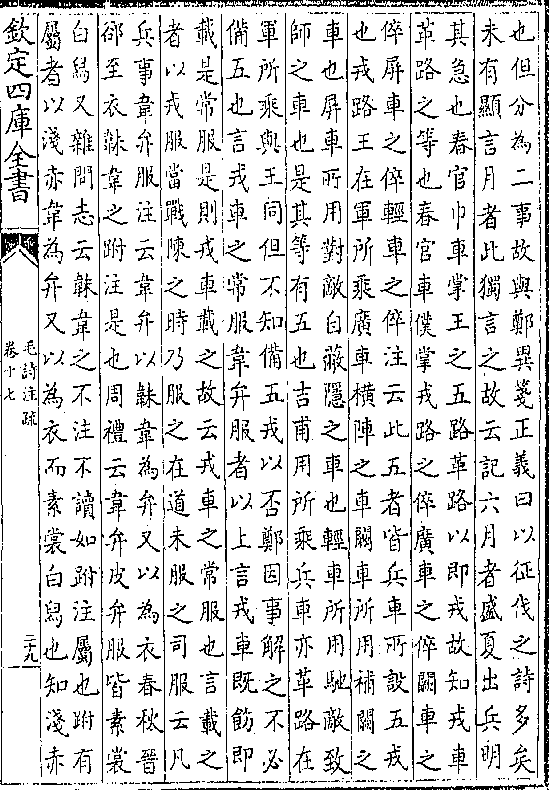 也但分為二事故與鄭異箋正義曰以征伐之詩多矣
未有顯言月者此獨言之故云記六月者盛夏出兵明
其急也春官巾車掌王之五路革路以即戎故知戎車
革路之等也春官車僕掌戎路之倅廣車之倅闕車之
倅屏車之倅輕車之倅注云此五者皆兵車所設五戎
也戎路王在軍所乘廣車橫陣之車闕車所用補闕之
車也屏車所用對敵自蔽隱之車也輕車所用馳敵致
師之車也是其等有五也吉甫用所乘兵車亦革路在
軍所乘與王同但不知備五戎以否鄭因事解之不必
備五也言戎車之常服韋弁服者以上言戎車既飭即
載是常服是則戎車載之故云戎車之常服也言載之
者以戎服當戰陳之時乃服之在道未服之司服云凡
兵事韋弁服注云韋弁以韎韋為弁又以為衣春秋晉
郤至衣韎韋之跗注是也周禮云韋弁皮弁服皆素裳
白舄又雜問志云韎韋之不注不讀如跗注屬也跗有
屬者以淺赤韋為弁又以為衣而素裳白舄也知淺赤
欽定四庫全書
毛詩注疏
卷十七
二十九